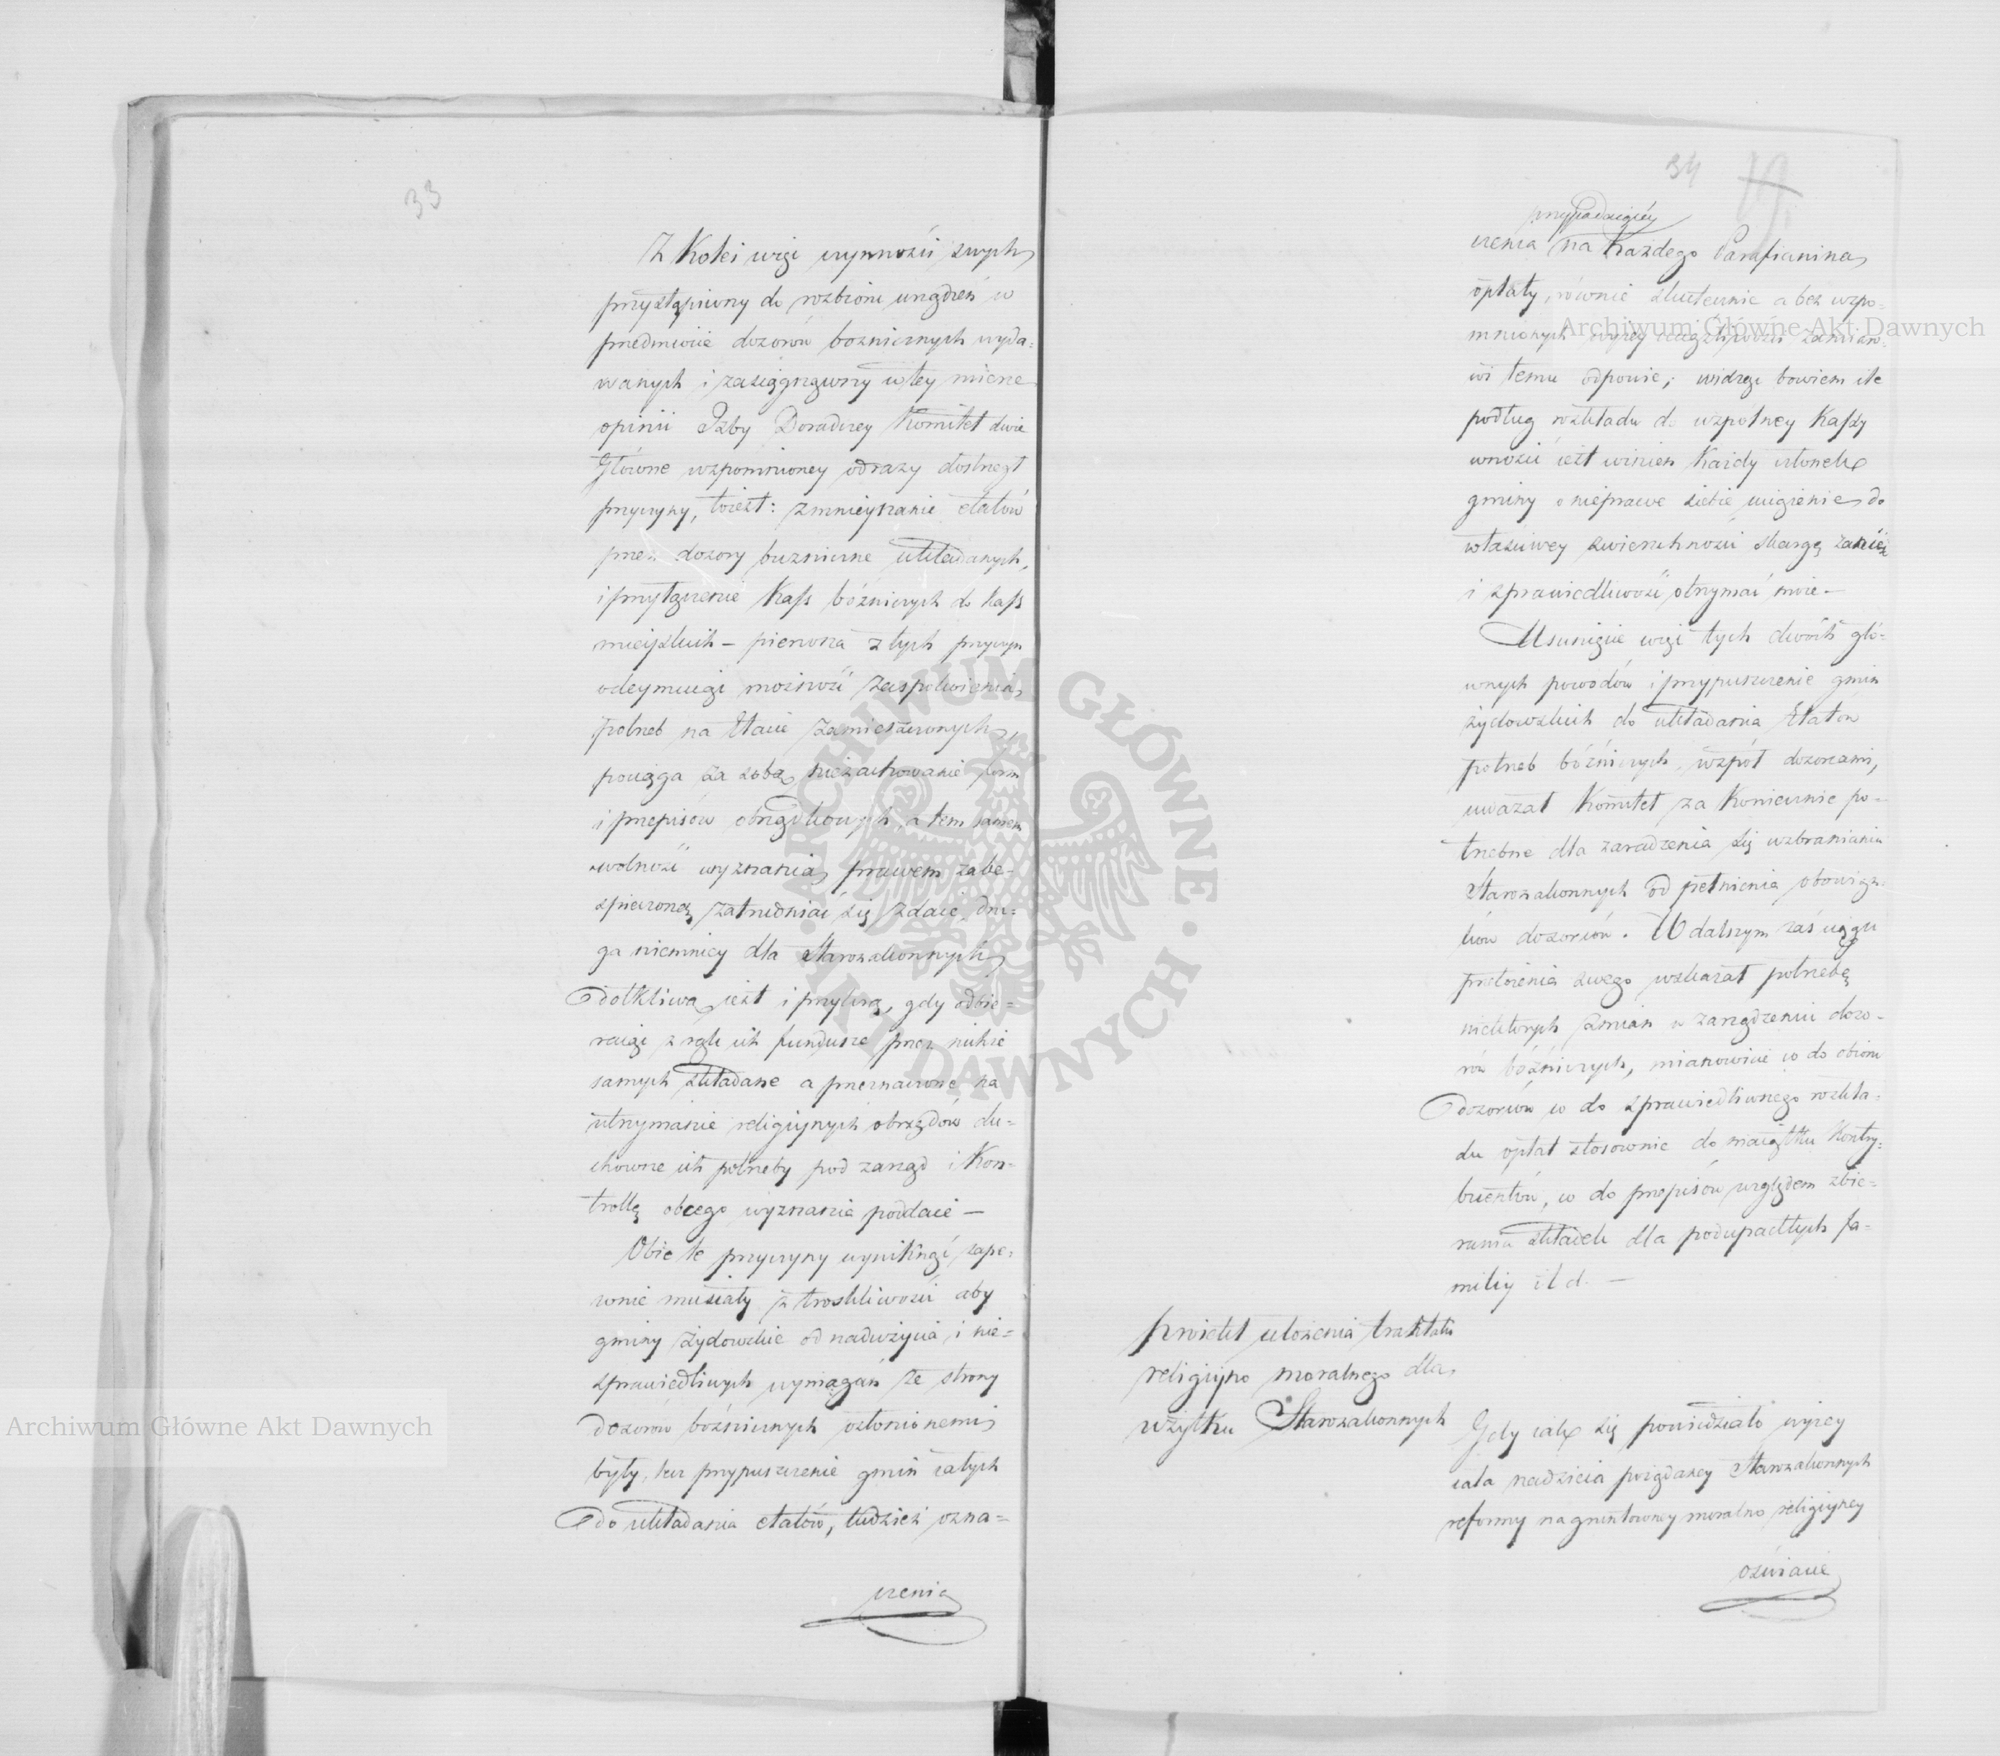 33
Z Kolei więc czynności swych
przystąpiwszy do rozbioru urządzeń w
przedmiocie dozorów bożnicznych wyda-
wanych i zasiągnąwszy w tey mierze
opinii Izby Doradczey Komitet dwie
Główne wzpomnioney odrazy dostrzegł
przyczyny, to iest: zmnieyszanie etatów
przez dozory bużniczne układanych,
i przyłączenie Kass bóżniczych do kass
mieyskich – pierwsza z tych przyczyn
odeymuiąc możność zaspokoienia
potrzeb na Etacie zamieszczonych,
pociąga za sobą niezachowanie form
i przepisów obrządkowych, a tem samem
wolność wyznania prawem zabe-
spieczoną zatrudniać się zdaie, dru-
ga niemniey dla Starozakonnych
dotkliwą iest i przykrą, gdy odbie-
raiąc z rąk ich fundusze przez nichże
samych składane a przeznaczone na
utrzymanie religiynych obrządów du-
chowne ich potrzeby pod zarząd i Kon-
trollę obcego wyznania poddaie –
Obie te przyczyny wyniknąć zape-
wnie musiały z troskliwości aby
gminy żydowskie od nadużycia i nie-
sprawiedliwych wymagań ze strony
dozorów bóżnicznych osłonionemi
były, lecz przypuszczenie gmin całych
do układania etatów, tudzież ozna-
czenia
34
19.
przypadaiącéy
czenia na każdego Parafianina
opłaty, równie skutecznie a bez wzpo-
mnionych wyżey niedogodności zamiaro-
wi temu odpowie; widząc bowiem ile
podług rozkładu do wzpólney Kassy
wnosić iest winien Każdy członek
gminy o nieprawe siebie uciążenie do
właściwey zwierzchności skargę zanieść
i sprawiedliwość otrzymać może –
Usunięcie więc tych dwóch głó-
wnych powodów i przypuszczenie gmin
żydowskich do układania Etatow
potrzeb bóżniczych, współ dozorcami,
uważał Komitet za koniecznie po-
trzebne dla zaradzenia się wzbranianiu
Starozakonnych od pełnienia obowiąz-
ków dozorców. W dalszym zaś ciągu
przełożenia swego wskazał potrzebę
niektórych zmian w zarządzeniu dozo-
rów bóżniczych, mianowicie co do obioru
dozorców co do sprawiedliwnego rozkła-
du opłat stosownie do maiątku Kontry-
buentów, co do przepisów względem zbie-
rania składek dla podupadłych fa-
miliy i t. d. –
Proiekt ułożenia traktatu
religiyno moralnego dla
użytku Starozakonnych
Gdy iakę się powiedziało wyżey
cała nadzieia pożądaney Starozakonnych
reformy na gruntowney moralno religiyney
oświacie
Archiwum Główne Akt Dawnych
Archiwum Główne Akt Dawnych
· ARCHIWUM GŁÓWNE · AKT DAWNYCH